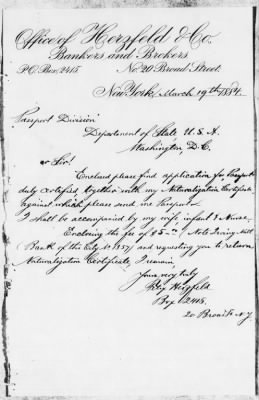 Office of Herzfeld & Co.
Bankers and Brokers
P.O. Box 2415 No. 20 Broad Street.
New York, March 19th 1884.
Passport Division
Department of State U.S.A.
Washington, D.C.
Sir!
Enclosed please find application for Passport
duly certified, together with my Naturalization Certificate,
against which please send me Passport.
I shall be accompanied by my wife, infant & Nurse.
Enclosing the fee of $5 Note Irving Natl
Bank of this City No 1357, and requesting you to return
Naturalization Certificate, I remain
Yours very truly
Herzfeld
Box 2415.
20 Broad St N.Y